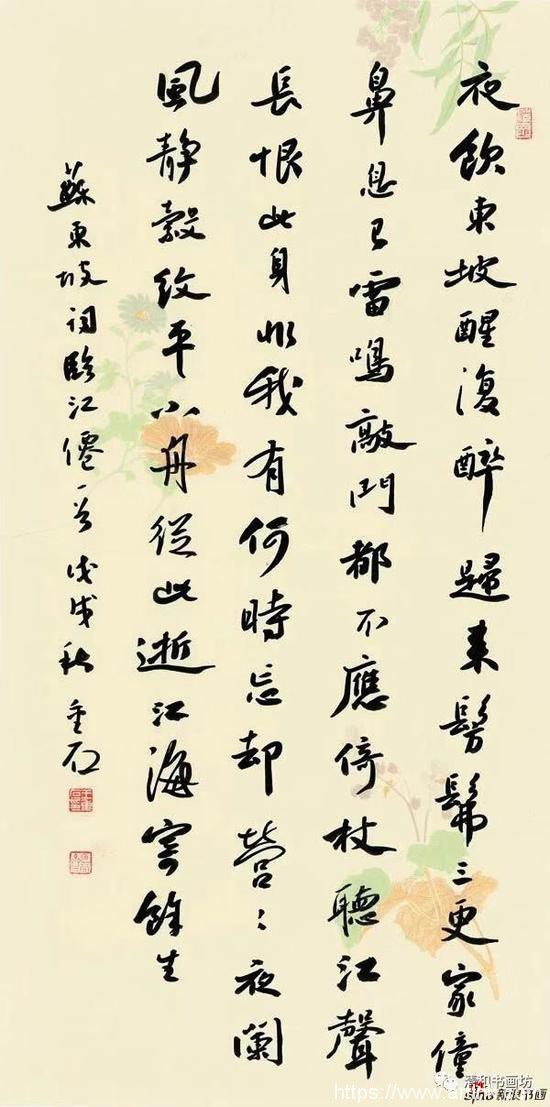 夜飲東坡醒復醉歸来髣髴三更家僮
鼻息已雷鳴敲門都不應倚杖聽江聲
長恨此身非我有何時忘却營〻夜闌
風靜縠紋平小舟從此逝江海寄餘生
蘇東坡詞臨江僊一首戊戌秋
和书画坊
https://www.a
sina新浪书画